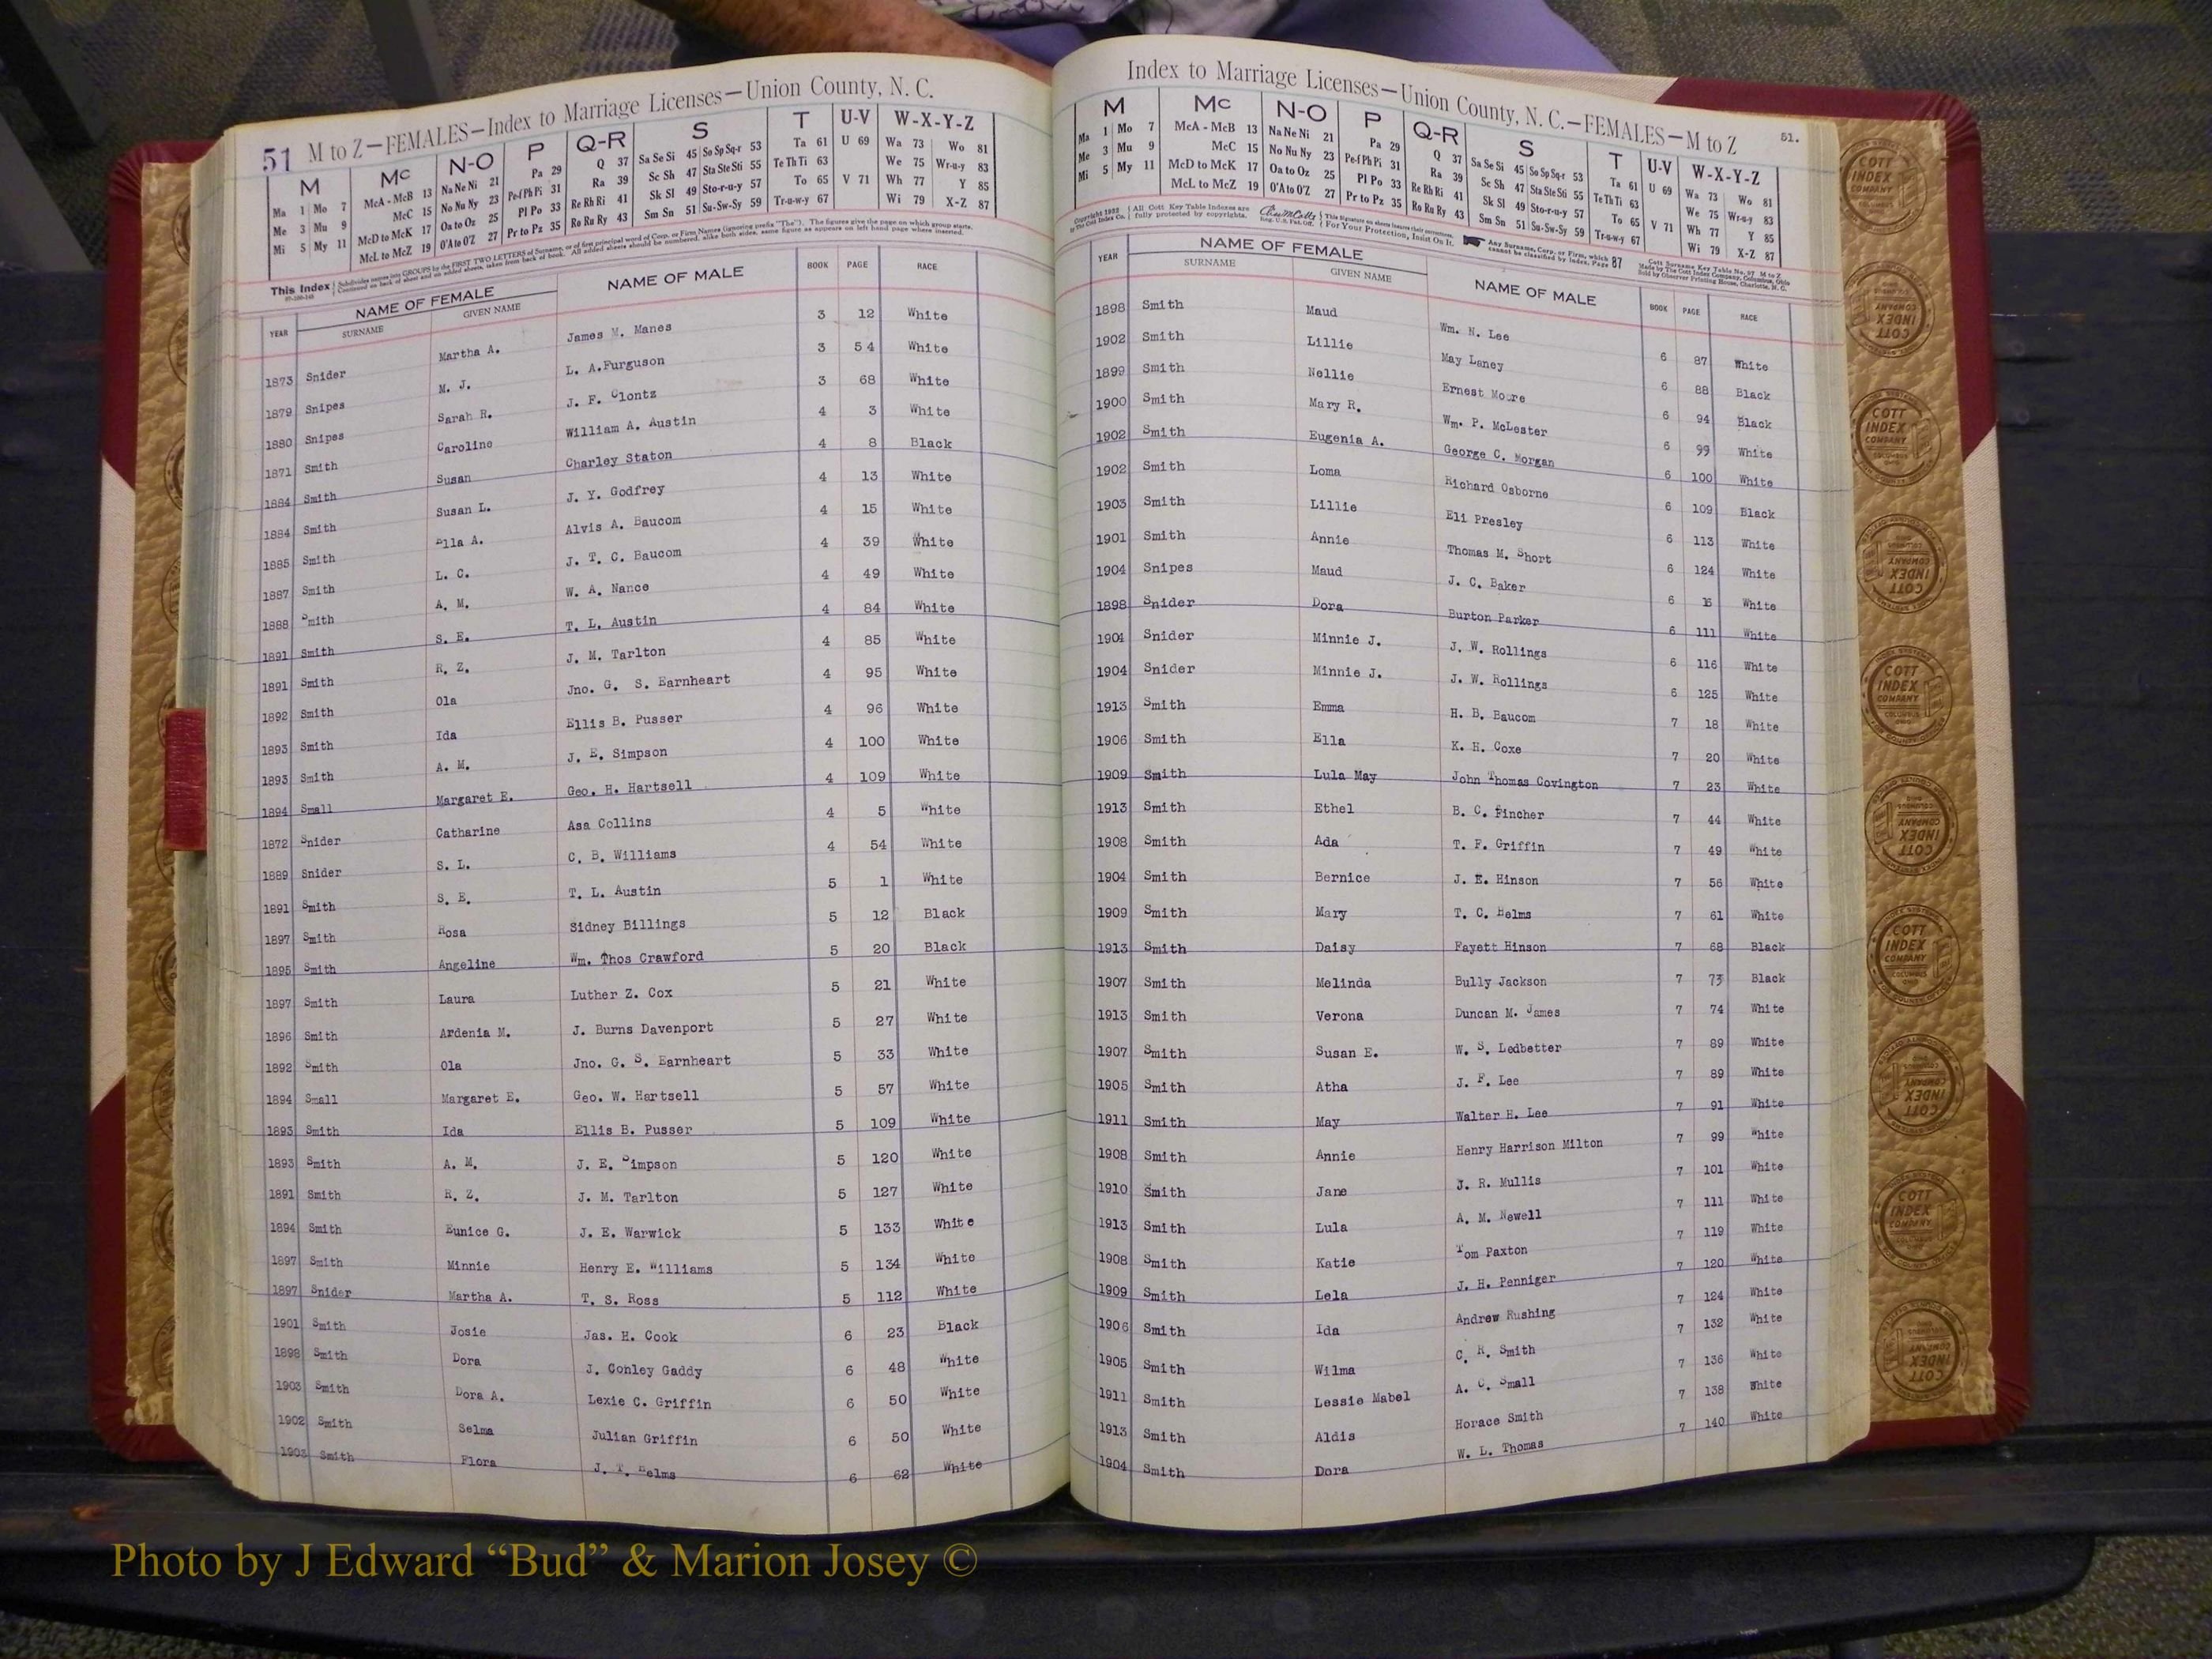 Index to Marriage Licenses—Union County, N. C.
51 M to Z—FEMALES—Index to Marriage Licenses—Union County, N. C.
M Mc N-O P Q-R S T U-V W-X-Y-Z
Ma 1 Mo 7 McA - McB 13 Na Ne Ni 21 Pa 29 Q 37 Sa Se Si 45 So Sp Sq-r 53 Ta 61 U 69 Wa 73 Wo 81
Me 3 Mu 9 McC 15 No Nu Ny 23 Pe-f Ph Pi 31 Ra 39 Sc Sh 47 Sta Ste Sti 55 Te Th Ti 63 We 75 Wr-u-y 83
Mi 5 My 11 McD to McK 17 Oa to Oz 25 Pl Po 33 Re Rh Ri 41 Sk Sl 49 Sto-r-u-y 57 To 65 V 71 Wh 77 Y 85
McL to McZ 19 O'A to O'Z 27 Pr to Pz 35 Ro Ru Ry 43 Sm Sn 51 Su-Sw-Sy 59 Tr-u-w-y 67 Wi 79 X-Z 87
This Index
YEAR NAME OF FEMALE SURNAME GIVEN NAME NAME OF MALE BOOK PAGE RACE
1873 Snider Martha A. James M. Manes 3 12 White
1879 Snipes M. J. L. A. Furguson 3 54 White
1880 Snipes Sarah R. J. F. Clontz 3 68 White
1871 Smith Caroline William A. Austin 4 3 White
1884 Smith Susan Charley Staton 4 8 Black
1884 Smith Susan L. J. Y. Godfrey 4 13 White
1885 Smith Ella A. Alvis A. Baucom 4 15 White
1887 Smith L. C. J. T. C. Baucom 4 39 White
1888 Smith A. M. W. A. Nance 4 49 White
1891 Smith S. E. T. L. Austin 4 84 White
1891 Smith R. Z. J. M. Tarlton 4 85 White
1892 Smith Ola Jno. G. S. Earnheart 4 95 White
1893 Smith Ida Ellis B. Pusser 4 96 White
1893 Smith A. M. J. E. Simpson 4 100 White
1894 Small Margaret E. Geo. H. Hartsell 4 109 White
1872 Snider Catharine Asa Collins 4 5 White
1889 Snider S. L. C. B. Williams 4 54 White
1891 Smith S. E. T. L. Austin 5 1 White
1897 Smith Rosa Sidney Billings 5 12 Black
1895 Smith Angeline Wm. Thos Crawford 5 20 Black
1897 Smith Laura Luther Z. Cox 5 21 White
1896 Smith Ardenia M. J. Burns Davenport 5 27 White
1892 Smith Ola Jno. G. S. Earnheart 5 33 White
1894 Small Margaret E. Geo. W. Hartsell 5 57 White
1893 Smith Ida Ellis B. Pusser 5 109 White
1893 Smith A. M. J. E. Simpson 5 120 White
1891 Smith R. Z. J. M. Tarlton 5 127 White
1894 Smith Eunice G. J. E. Warwick 5 133 White
1897 Smith Minnie Henry E. Williams 5 134 White
1897 Snider Martha A. T. S. Ross 5 112 White
1901 Smith Josie Jas. H. Cook 6 23 Black
1898 Smith Dora J. Conley Gaddy 6 48 White
1903 Smith Dora A. Lexie C. Griffin 6 50 White
1902 Smith Selma Julian Griffin 6 50 White
1903 Smith Flora J. T. Helms 6 62 White
Index to Marriage Licenses—Union County, N. C.—FEMALES—M to Z 51.
M Mc N-O P Q-R S T U-V W-X-Y-Z
Ma 1 Mo 7 McA - McB 13 Na Ne Ni 21 Pa 29 Q 37 Sa Se Si 45 So Sp Sq-r 53 Ta 61 U 69 Wa 73 Wo 81
Me 3 Mu 9 McC 15 No Nu Ny 23 Pe-f Ph Pi 31 Ra 39 Sc Sh 47 Sta Ste Sti 55 Te Th Ti 63 We 75 Wr-u-y 83
Mi 5 My 11 McD to McK 17 Oa to Oz 25 Pl Po 33 Re Rh Ri 41 Sk Sl 49 Sto-r-u-y 57 To 65 V 71 Wh 77 Y 85
McL to McZ 19 O'A to O'Z 27 Pr to Pz 35 Ro Ru Ry 43 Sm Sn 51 Su-Sw-Sy 59 Tr-u-w-y 67 Wi 79 X-Z 87
YEAR NAME OF FEMALE SURNAME GIVEN NAME NAME OF MALE BOOK PAGE RACE
1898 Smith Maud Wm. N. Lee 6 87 White
1902 Smith Lillie May Laney 6 88 Black
1899 Smith Nellie Ernest Moore 6 94 Black
1900 Smith Mary R. Wm. P. McLester 6 99 White
1902 Smith Eugenia A. George C. Morgan 6 100 White
1902 Smith Loma Richard Osborne 6 109 Black
1903 Smith Lillie Eli Presley 6 113 White
1901 Smith Annie Thomas M. Short 6 124 White
1904 Snipes Maud J. C. Baker 6 White
1898 Snider Dora Burton Parker 6 111 White
1904 Snider Minnie J. J. W. Rollings 6 116 White
1904 Snider Minnie J. J. W. Rollings 6 125 White
1913 Smith Emma H. B. Baucom 7 18 White
1906 Smith Ella K. H. Coxe 7 20 White
1909 Smith Lula May John Thomas Covington 7 23 White
1913 Smith Ethel B. C. Fincher 7 44 White
1908 Smith Ada T. F. Griffin 7 49 White
1904 Smith Bernice J. E. Hinson 7 56 White
1909 Smith Mary T. C. Helms 7 61 White
1913 Smith Daisy Fayett Hinson 7 68 Black
1907 Smith Melinda Bully Jackson 7 73 Black
1913 Smith Verona Duncan M. James 7 74 White
1907 Smith Susan E. W. S. Ledbetter 7 89 White
1905 Smith Atha J. F. Lee 7 89 White
1911 Smith May Walter H. Lee 7 91 White
1908 Smith Annie Henry Harrison Milton 7 99 White
1910 Smith Jane J. R. Mullis 7 101 White
1913 Smith Lula A. M. Newell 7 111 White
1908 Smith Katie Tom Paxton 7 119 White
1909 Smith Lela J. H. Penniger 7 120 White
1906 Smith Ida Andrew Rushing 7 124 White
1905 Smith Wilma C. R. Smith 7 132 White
1911 Smith Lessie Mabel A. C. Small 7 136 White
1913 Smith Aldis Horace Smith 7 138 White
1904 Smith Dora W. L. Thomas 7 140 White
COTT INDEX COMPANY
Photo by J Edward “Bud” & Marion Josey ©